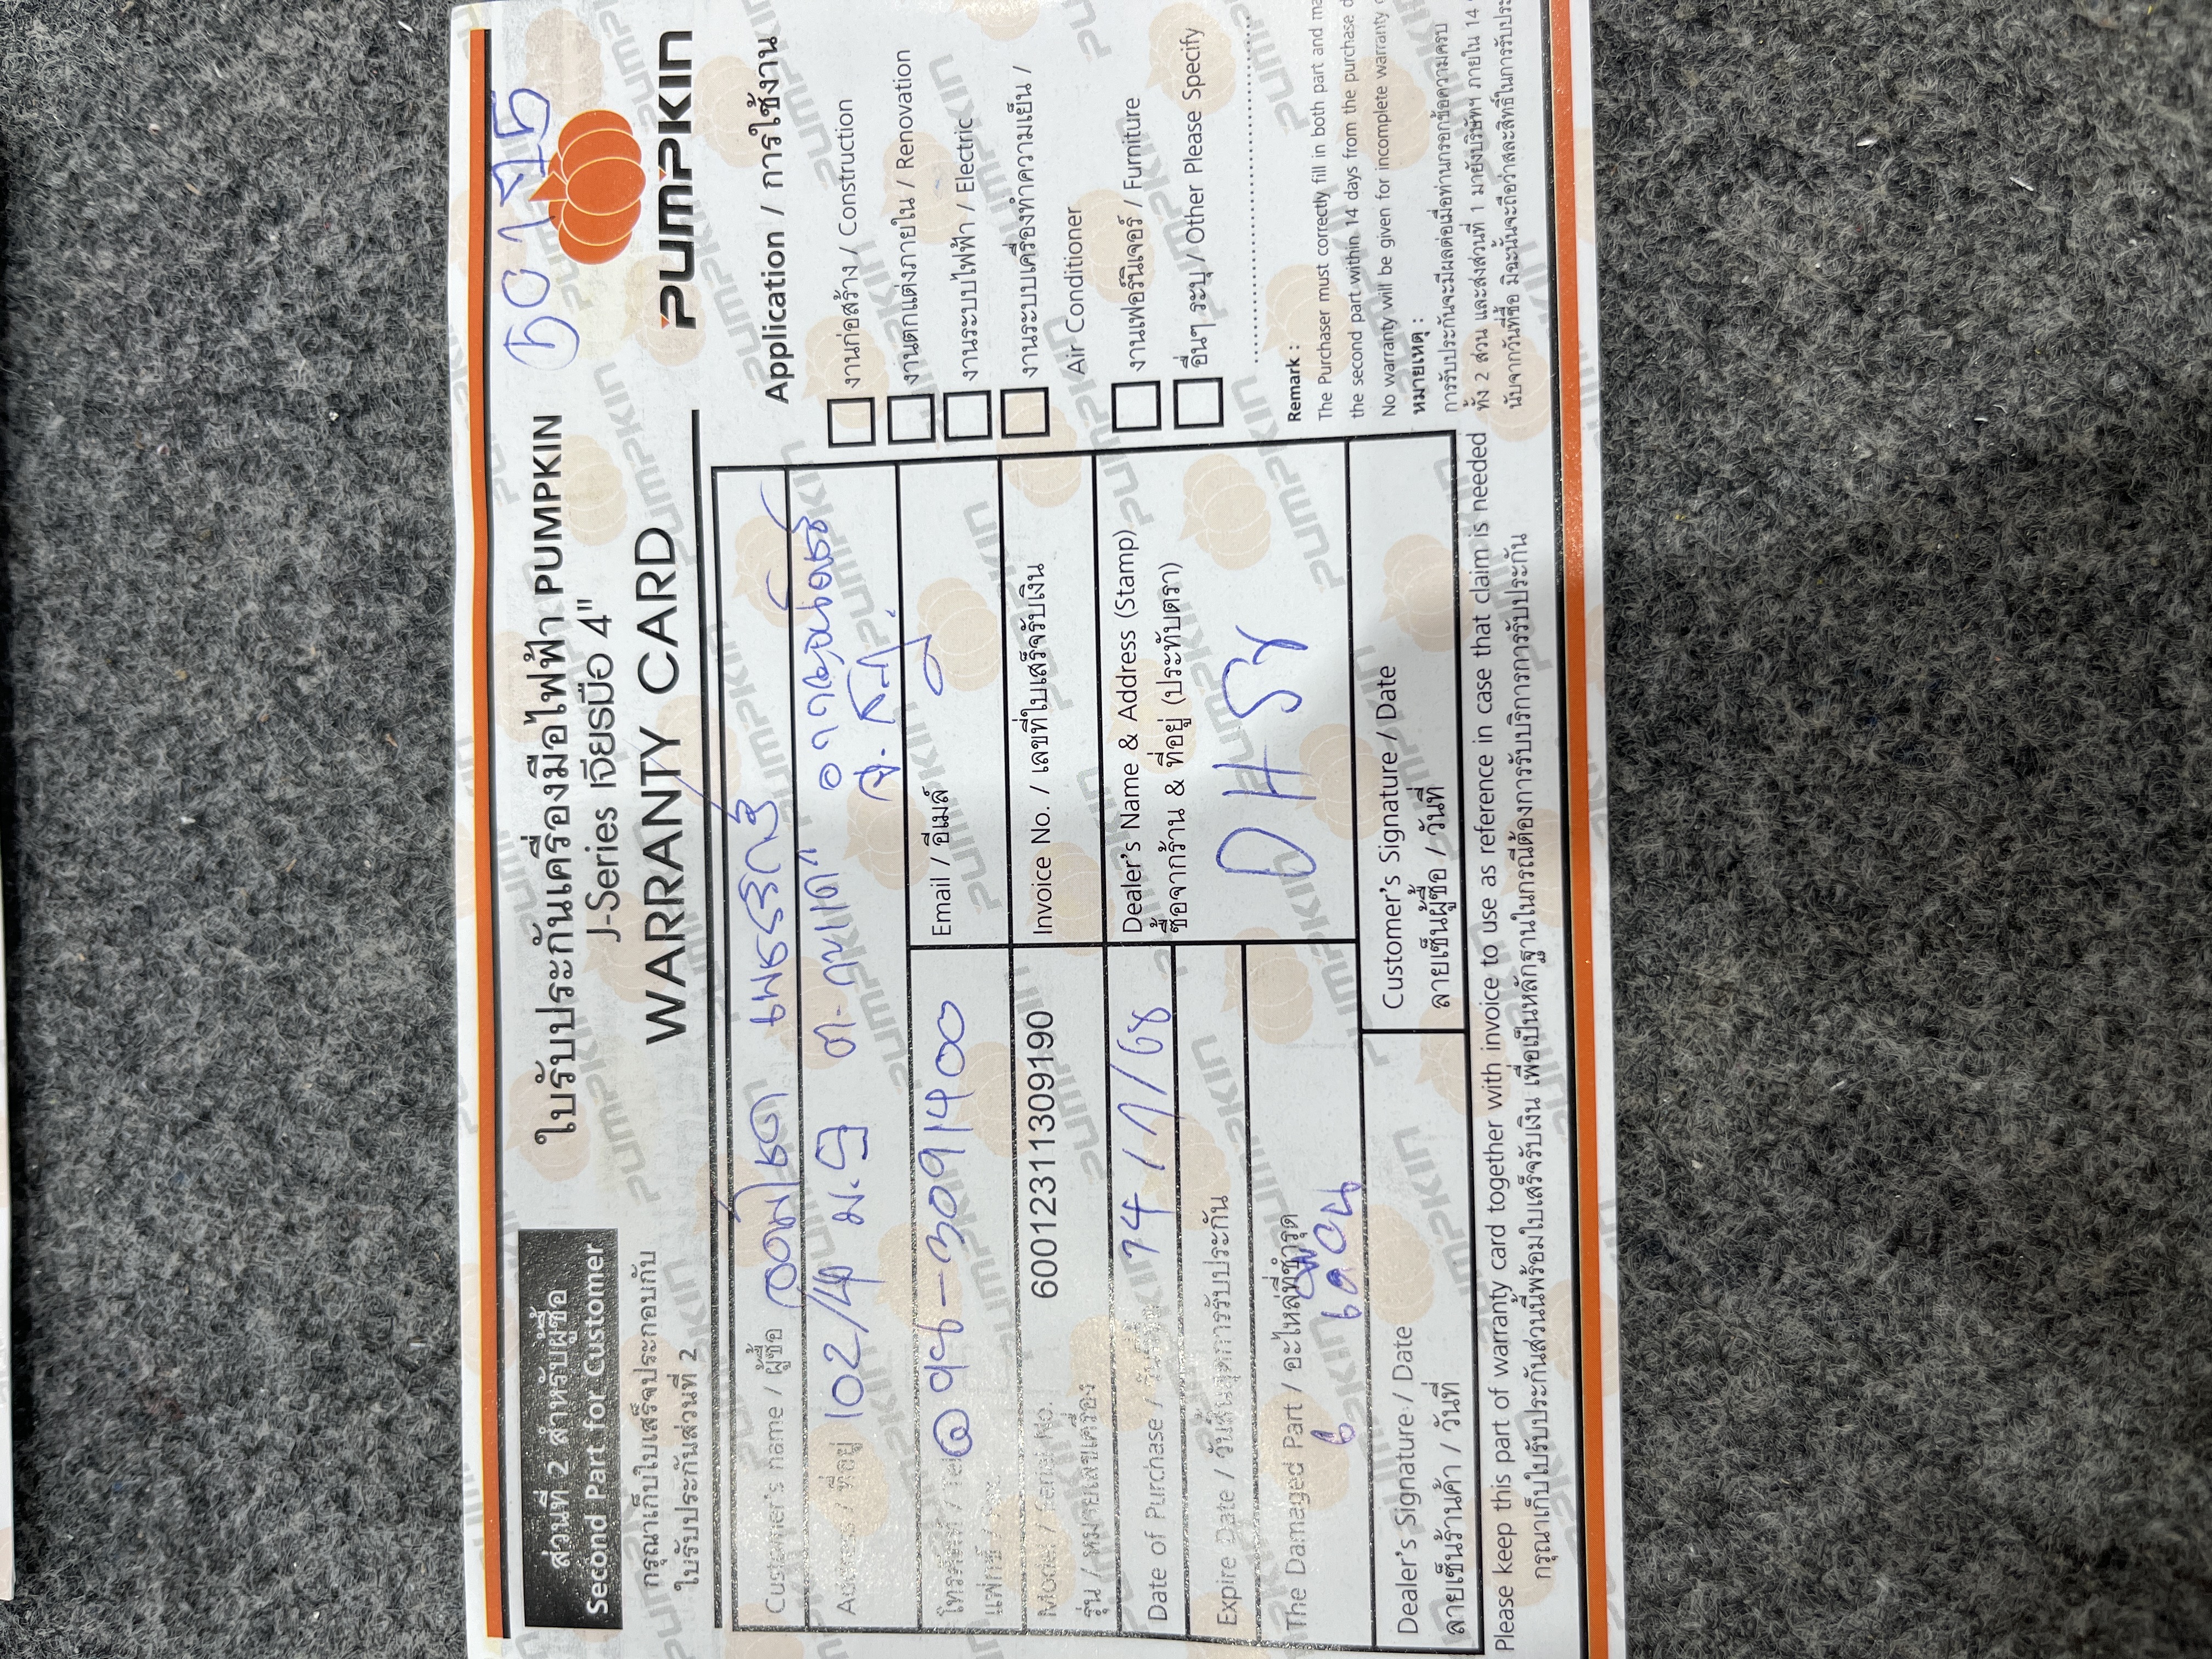 ส่วนที่ 2 สำหรับผู้ซื้อ
Second Part for Customer
กรุณาเก็บใบเสร็จประกอบกับ
ใบรับประกันส่วนที่ 2
ใบรับประกันเครื่องมือไฟฟ้า PUMPKIN
J-Series เจียรมือ 4"
WARRANTY CARD
PUMPKIN
Customer's name / ผู้ซื้อ
Address / ที่อยู่ 102/4
Email / อีเมล์
Model / Serial No. 6001231131309190
รุ่น / หมายเลขเครื่อง
Invoice No. / เลขที่ใบเสร็จรับเงิน
Date of Purchase / วันที่ซื้อ 14/7/68
Expire Date / วันสิ้นสุดการรับประกัน
The Damaged Part / อะไหล่ที่ชำรุด
6 เดือน
Dealer's Name & Address (Stamp)
ซื้อจากร้าน & ที่อยู่ (ประทับตรา)
Dealer's Signature / Date
ลายเซ็นร้านค้า / วันที่
Customer's Signature / Date
ลายเซ็นผู้ซื้อ / วันที่
Application / การใช้งาน
งานก่อสร้าง / Construction
งานตกแต่งภายใน / Renovation
งานระบบไฟฟ้า / Electric
งานระบบเครื่องทำความเย็น /
Air Conditioner
งานเฟอร์นิเจอร์ / Furniture
อื่นๆ ระบุ / Other Please Specify
Remark :
The Purchaser must correctly fill in both part and
the second part within 14 days from the purchase
No warranty will be given for incomplete warranty
หมายเหตุ :
การรับประกันจะมีผลต่อเมื่อท่านกรอกข้อความครบ
ทั้ง 2 ส่วน และส่งส่วนที่ 1 มายังบริษัทฯ ภายใน 14
นับจากวันที่ซื้อ มิฉะนั้นจะถือว่าสละสิทธิ์ในการรับประ
Please keep this part of warranty card together with invoice to use as reference in case that claim is needed
กรุณาเก็บใบรับประกันส่วนนี้พร้อมใบเสร็จรับเงิน เพื่อเป็นหลักฐานในกรณีต้องการรับบริการการรับประกัน